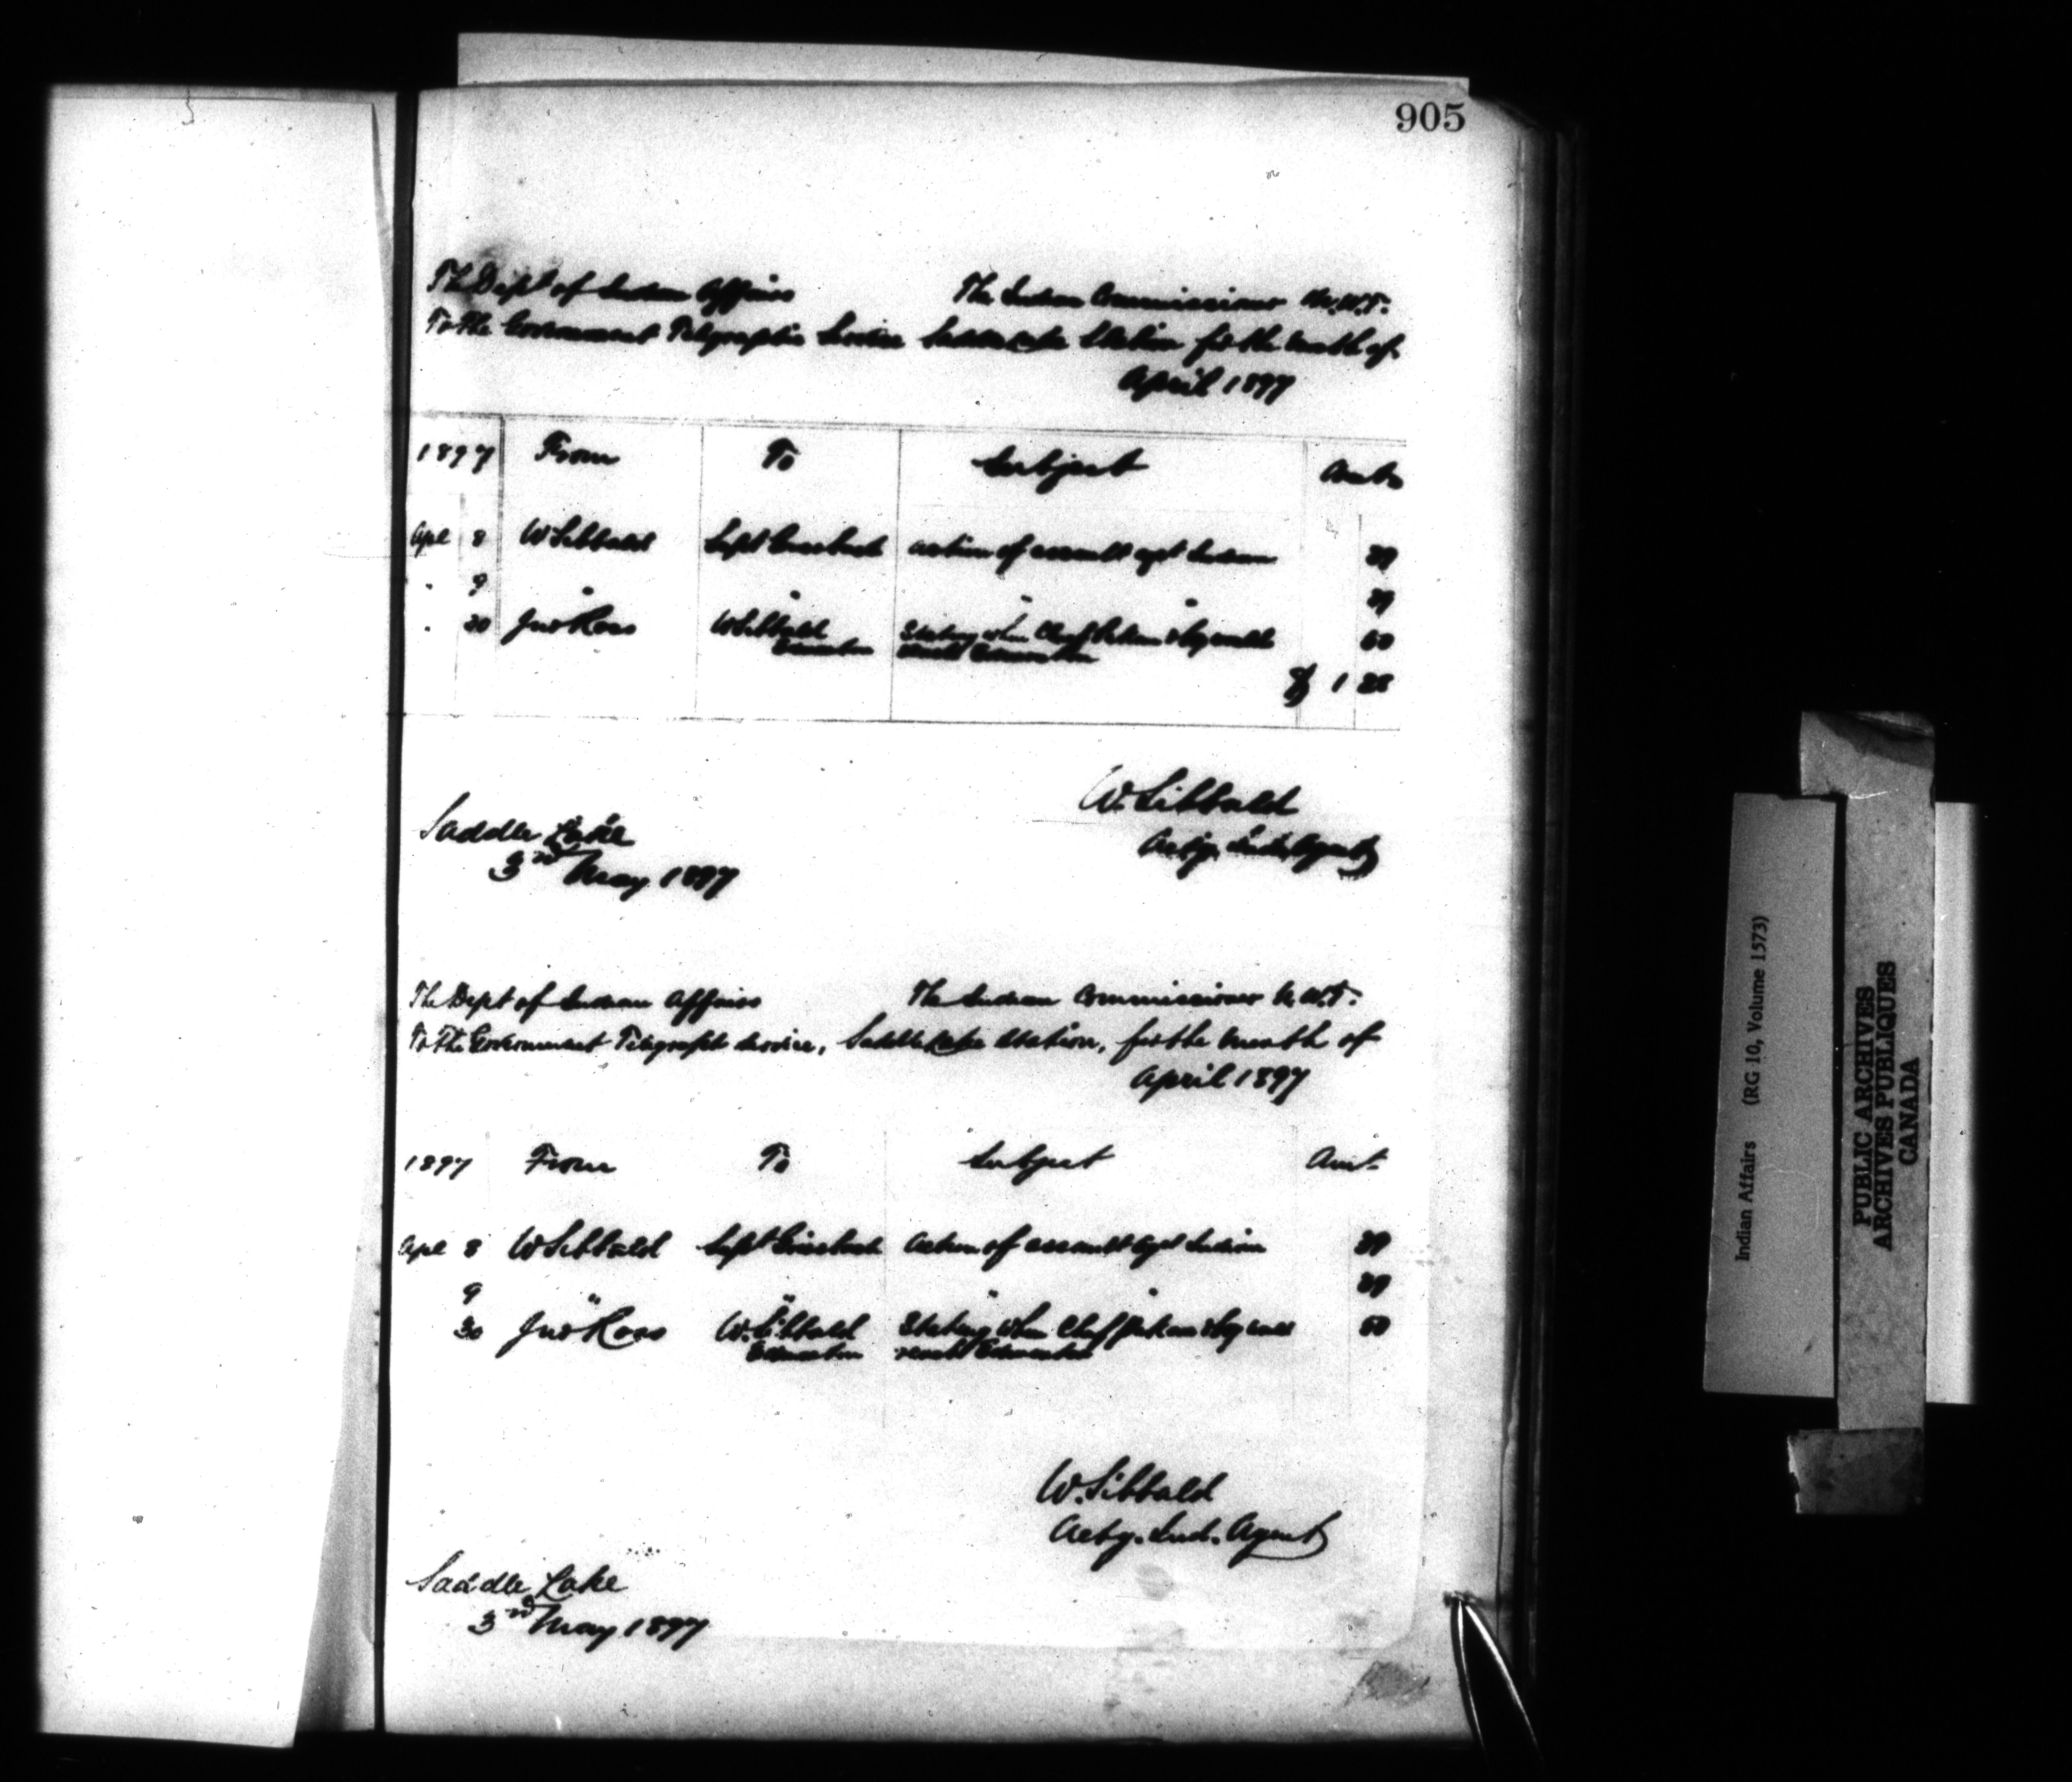 905
The Dept of Indian Affairs The Indian Commissioner N.W.T.
To the Government Telegraph Service Saddle Lake Station for the month of
April 1897
1897 From To Subject Amt
Apl 8 W Sibbald Supt Griesbach action of assault agst Indian
" 9 " " " "
" 30 Jno Ross W Sibbald Stating when Chief Pakan &
Edmonton reach Edmonton 50
$ 1
W. Sibbald
Actg. Ind. Agent
Saddle Lake
3rd May 1897
The Dept of Indian Affairs The Indian Commissioner N.W.T.
To the Government Telegraph Service, Saddle Lake Station, for the month of
April 1897
1897 From To Subject Amt.
Apl 8 W Sibbald Supt Griesbach Action of assault agst Indian
9 " " " "
30 Jno Ross W. Sibbald Stating when Chief Pakan & 50
Edmonton reach Edmonton
W. Sibbald
Actg. Ind. Agent
Saddle Lake
3rd May 1897
Indian Affairs (RG 10, Volume 1573)
PUBLIC ARCHIVES
ARCHIVES PUBLIQUES
CANADA